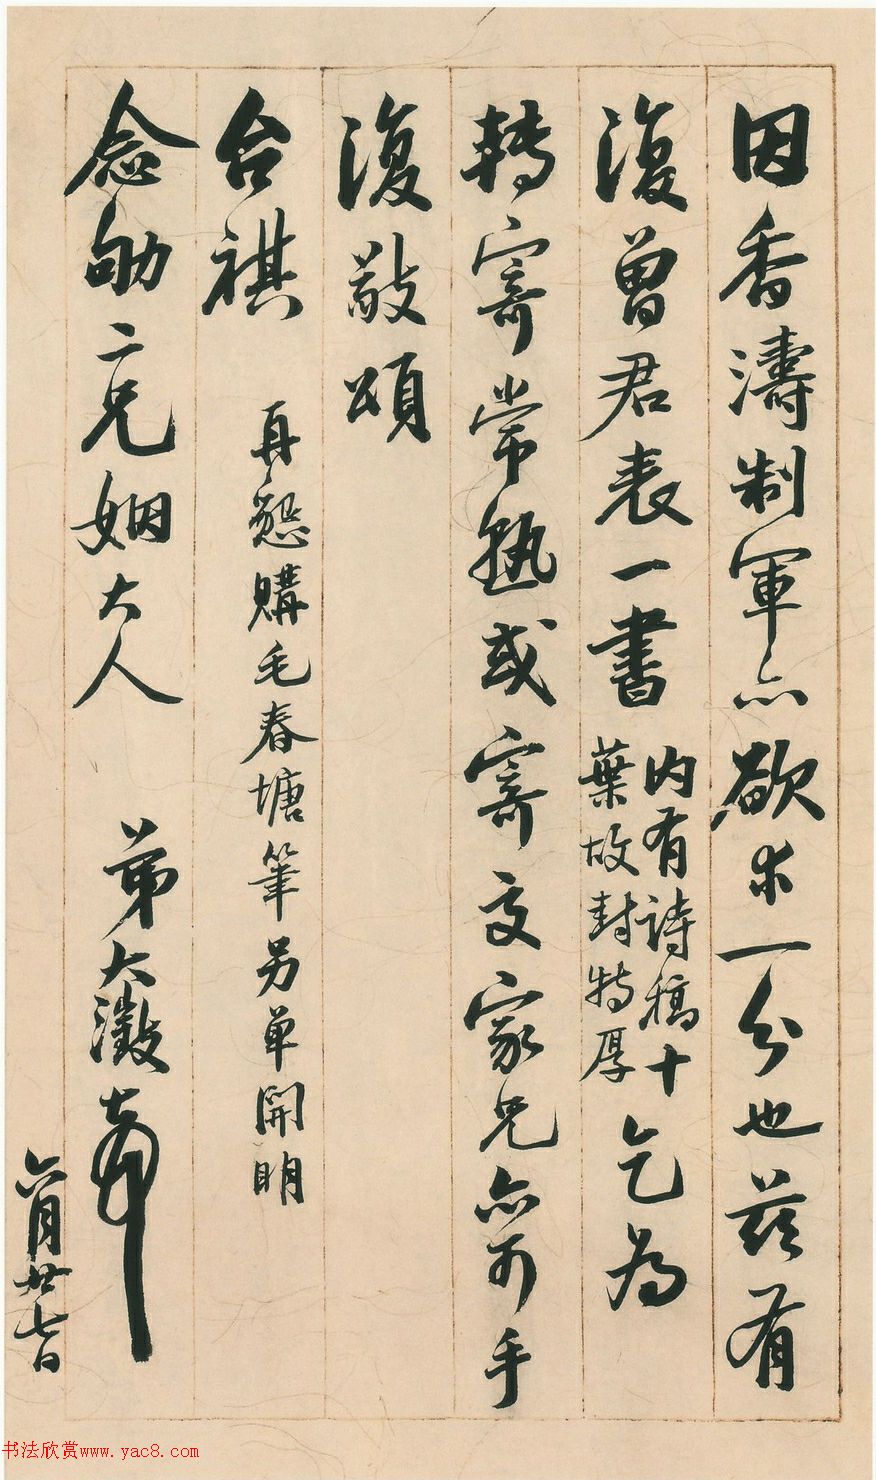 因香濤制軍亦欲求一分也茲有
復曾君表一書
內有詩稿十
葉故封特厚
乞為
轉寄常熟或寄交家兄亦可手
復敬頌
台祺
再懇購毛春塘筆另單開明
念劬二兄姻大人
弟大澂
六月廿七日
书法欣赏www.yac8.com